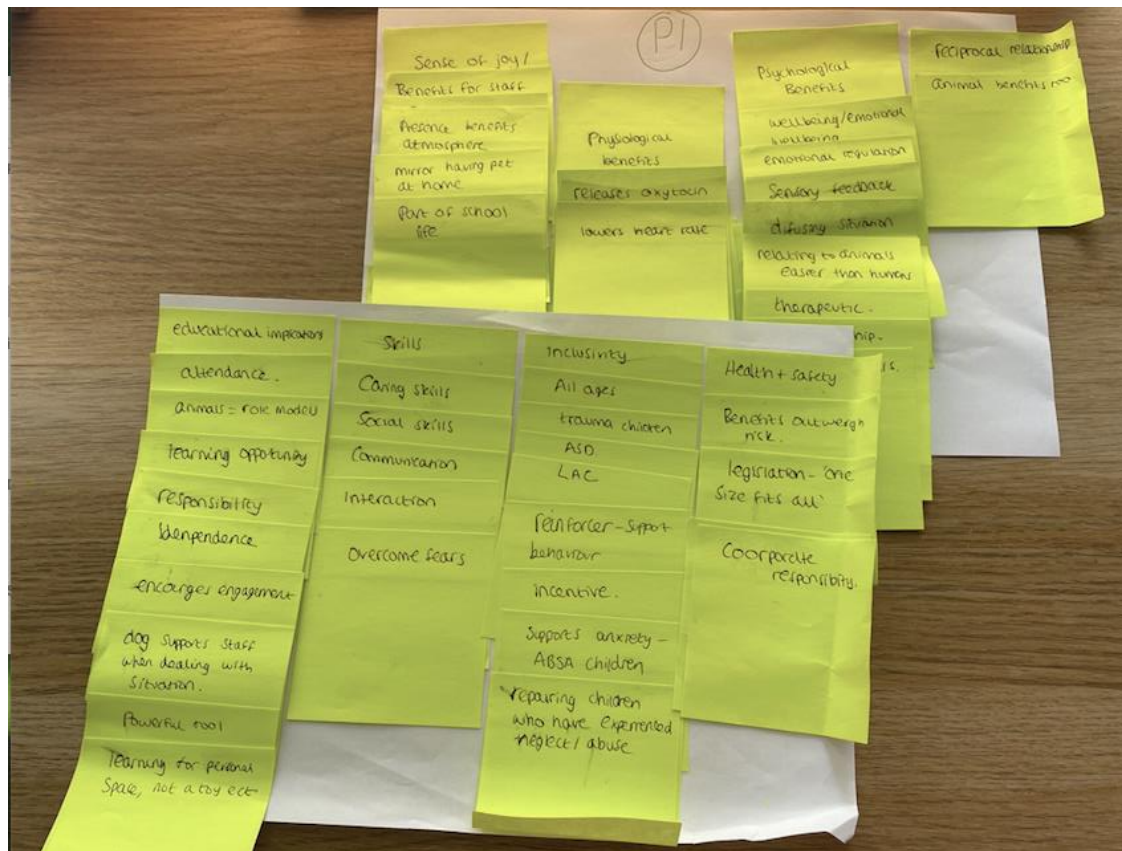 P1
Sense of joy/
Benefits for staff
Presence benefits
atmosphere
mirror having pet
at home
Part of school
life
Physiological
benefits
releases oxytocin
lowers heart rate
Psychological
Benefits
wellbeing/emotional
wellbeing
emotional regulation
Sensory feedback
difusing situation
relating to animals
easier than humans
therapeutic.
hip.
is.
reciprocal relationship
animal benefits too
educational implications
attendance.
animals = role model
learning opportunity
responsibility
Idenpendence
encourges engagement
dog supports staff
when dealing with
situation.
Powerful tool
learning for personal
space, not a toy ect
Skills
Caring skills
Social skills
Communication
Interaction
Overcome fears
Inclusivity
All ages
trauma children
ASD
LAC
reinforcer - support
behaviour
incentive.
Supports anxiety -
ABSA children
repairing children
who have experienced
neglect / abuse
Health + safety
Benefits outweigh
risk.
legislation - 'one
size fits all'
Coorporate
responsibity.